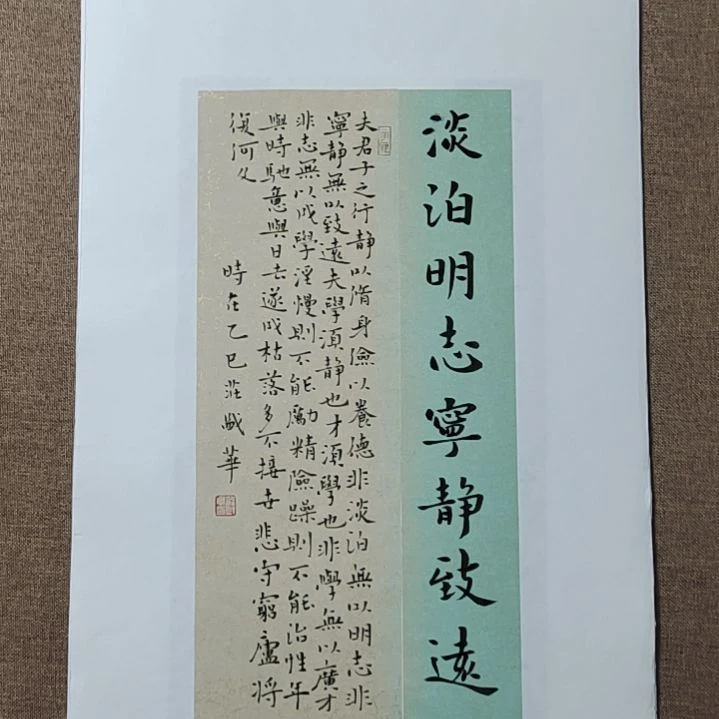 淡泊明志寧静致遠
夫君子之行静以脩身儉以養德非淡泊無以明志非
寧静無以致遠夫學須静也才須學也非學無以廣才
非志無以成學淫慢則不能勵精險躁則不能治性年
與時馳意與日去遂成枯落多不接世悲守窮廬將
復何及
時在乙巳莊盛華